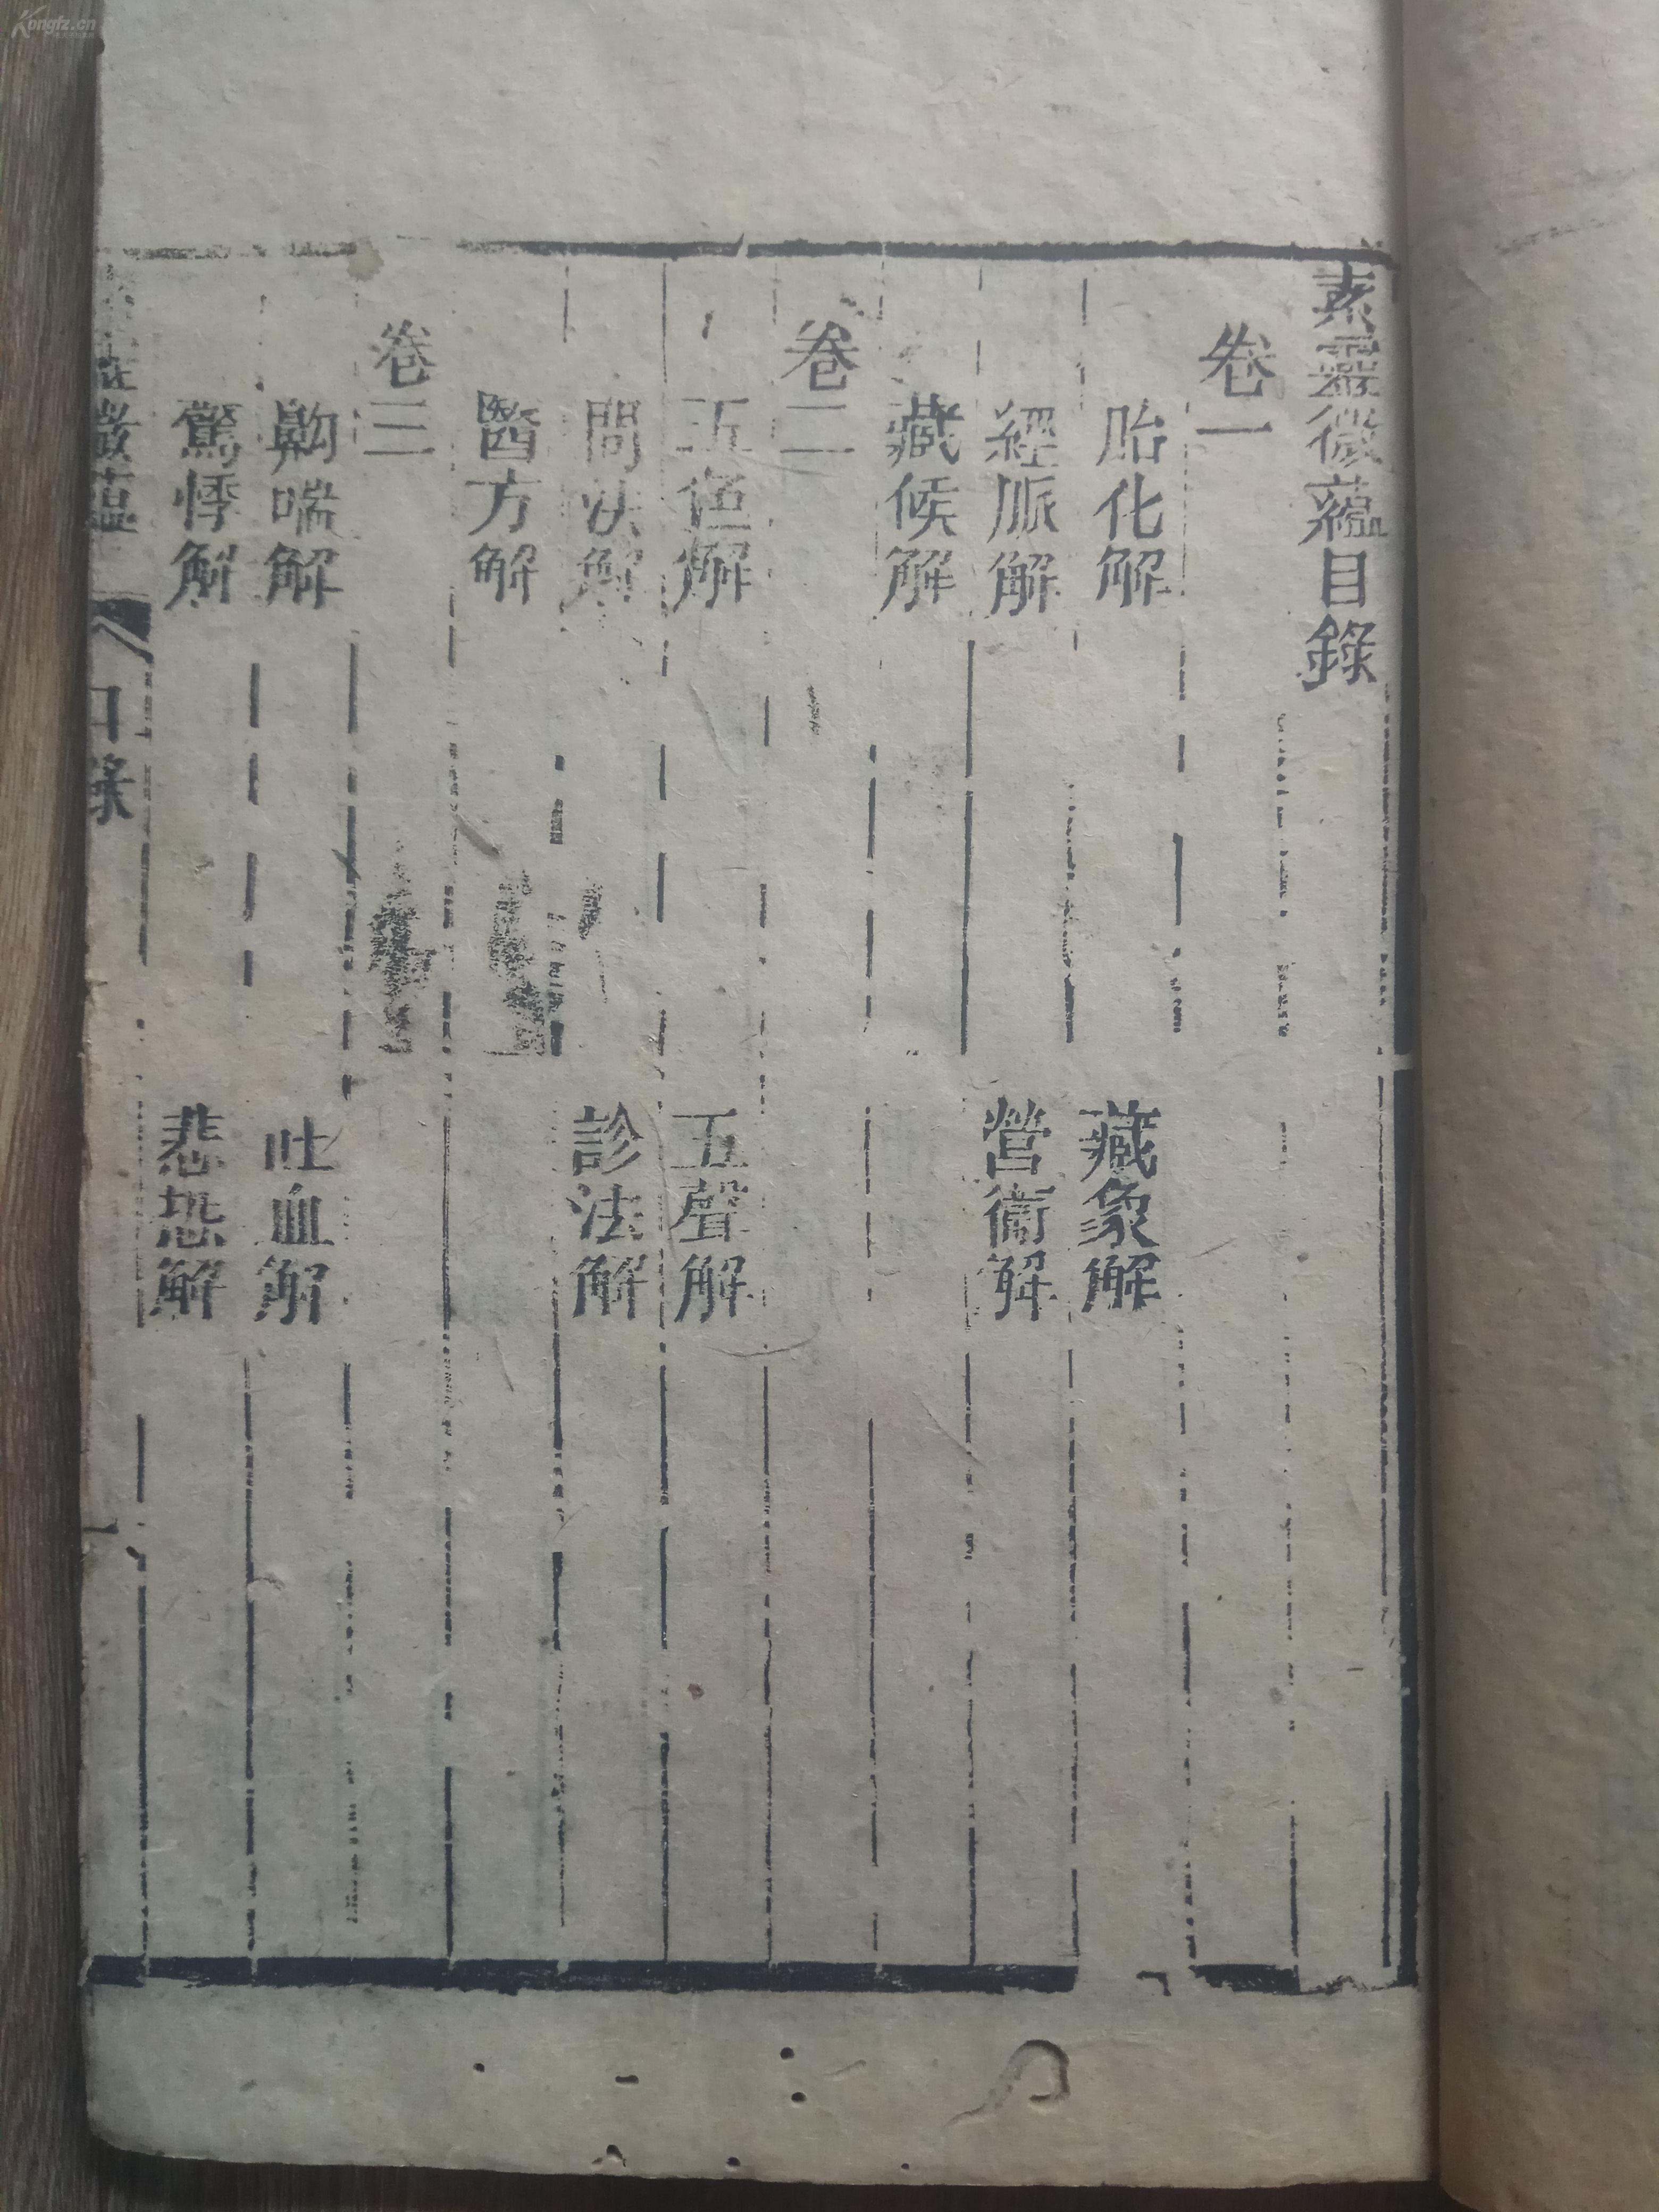 素靈微蘊目錄
卷一
胎化解 藏象解
經脈解 營衞解
藏候解
卷二
五色解 五聲解
問法解 診法解
醫方解
卷三
齁喘解 吐血解
驚悸解 悲恐解
微蘊 目錄
Kongfz.cn